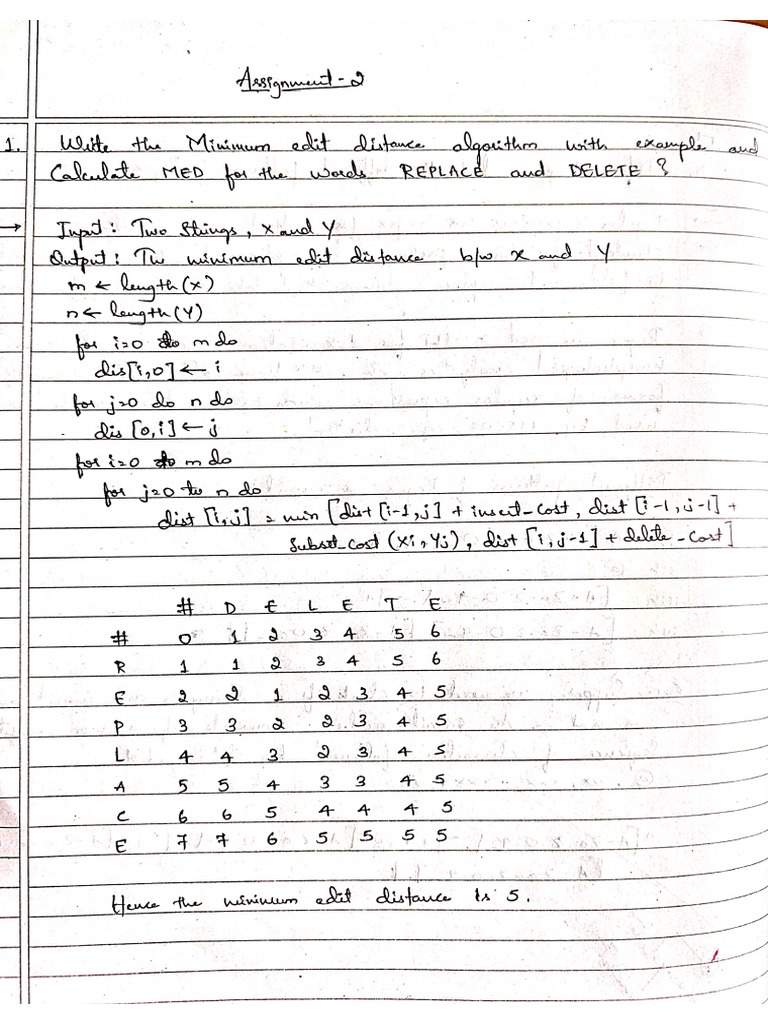 Assignment-2
1. Write the Minimum edit distance algorithm with example and
Calculate MED for the words REPLACE and DELETE ?
→ Input: Two Strings, X and Y
Output: The minimum edit distance b/w X and Y
m ← length(X)
n ← length(Y)
for i=0 to m do
dis[i,0] ← i
for j=0 do n do
dis [0,i] ← j
for i=0 to m do
for j=0 to n do
dist [i,j] = min [dist [i-1,j] + insert-cost, dist [i-1,j-1] +
Subst-cost (Xi, Yj), dist [i,j-1] + delete-cost]
# D E L E T E
# 0 1 2 3 4 5 6
R 1 1 2 3 4 5 6
E 2 2 1 2 3 4 5
P 3 3 2 2 3 4 5
L 4 4 3 2 3 4 5
A 5 5 4 3 3 4 5
C 6 6 5 4 4 4 5
E 7 7 6 5 5 5 5
Hence the minimum edit distance is 5.